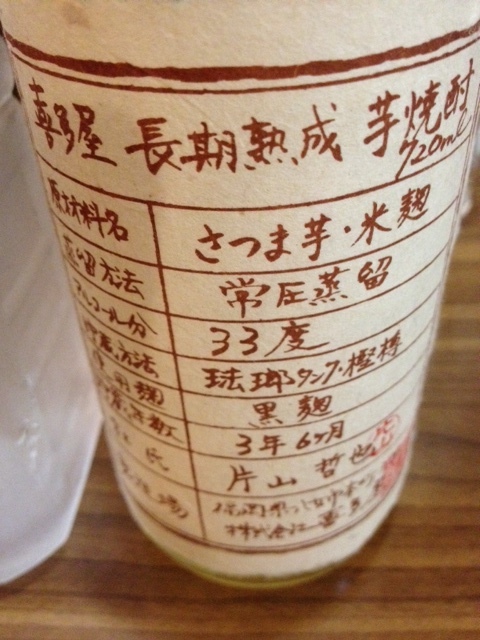 喜多屋 長期熟成 芋焼酎
720ml
原材料名 さつま芋・米麹
蒸留方法 常圧蒸留
アルコール分 33度
貯蔵方法 琺瑯タンク・樫樽
使用麹 黒麹
貯蔵年数 3年6ヶ月
杜氏 片山哲也
株式会社 喜多屋